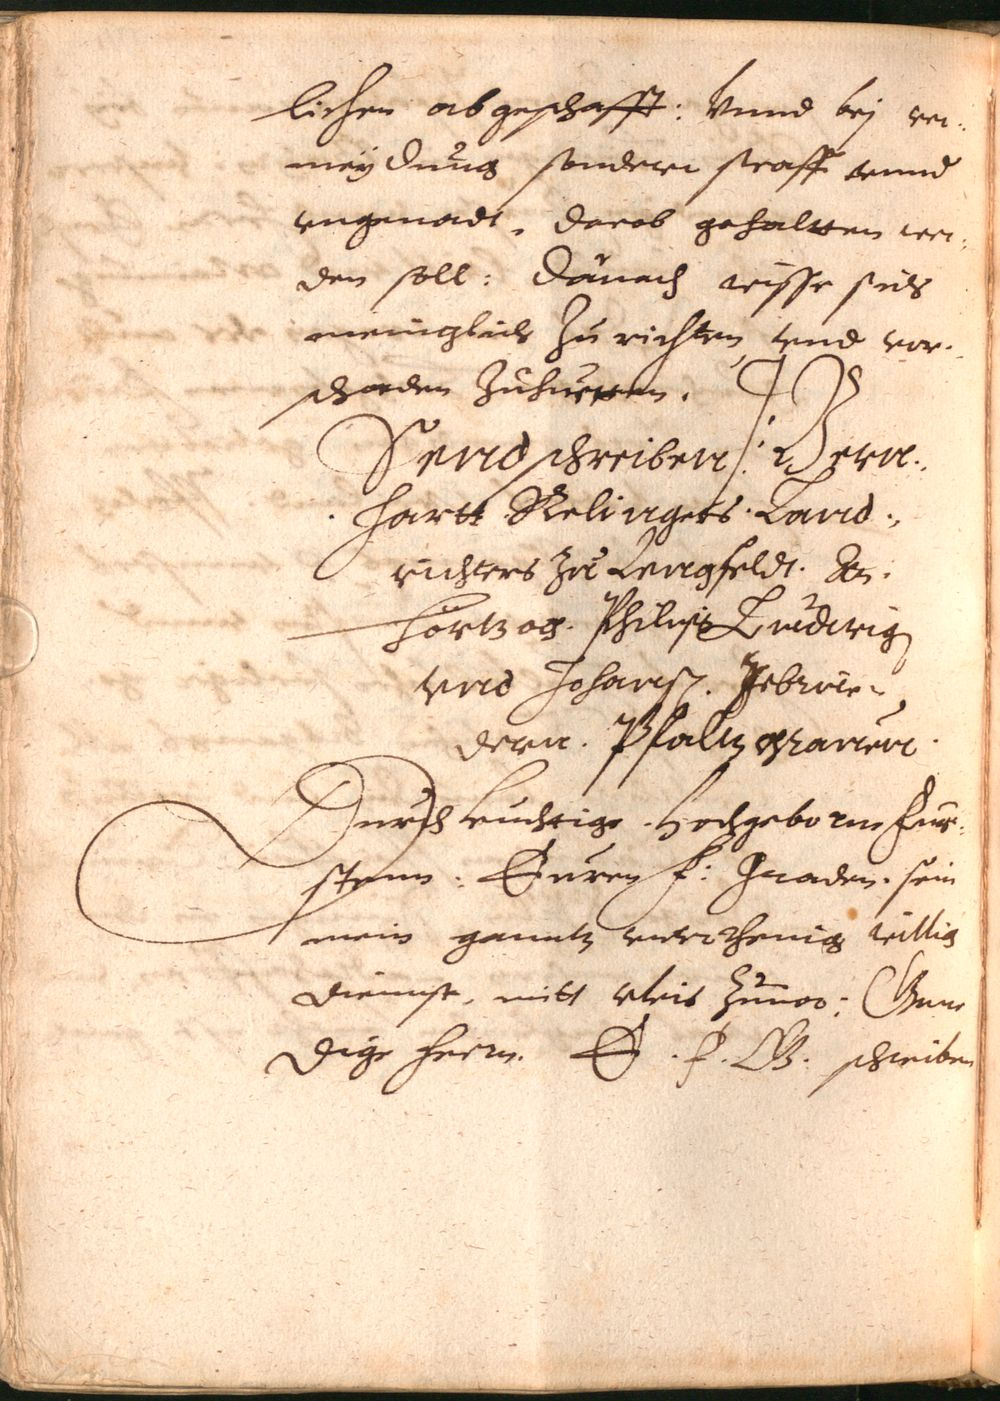 lichen abgeschafft: Vnnd bej ver-
meydung sonderer straff vnnd
vngenadt, darob gehaltten wer-
den soll: Danach wisse sich
meinglich Zu richten, vnd vor
schaden Zuhuetten.
Sendschreiben Bern-
hartt Relingers Land-
richters Zu Lengfeldt. An
Hörtzog. Philips Ludwig
vnd Johans. Gebrüe-
dern. Pfaltzgrauen.
Durchleuchtige Hochgeborne Fur-
sten: Euren f: Gnaden. sein
mein ganntz vnterthenig willig
diennst, mitt vleis Zuuor: Gene
dige Herrn. E. F. G. schreiben